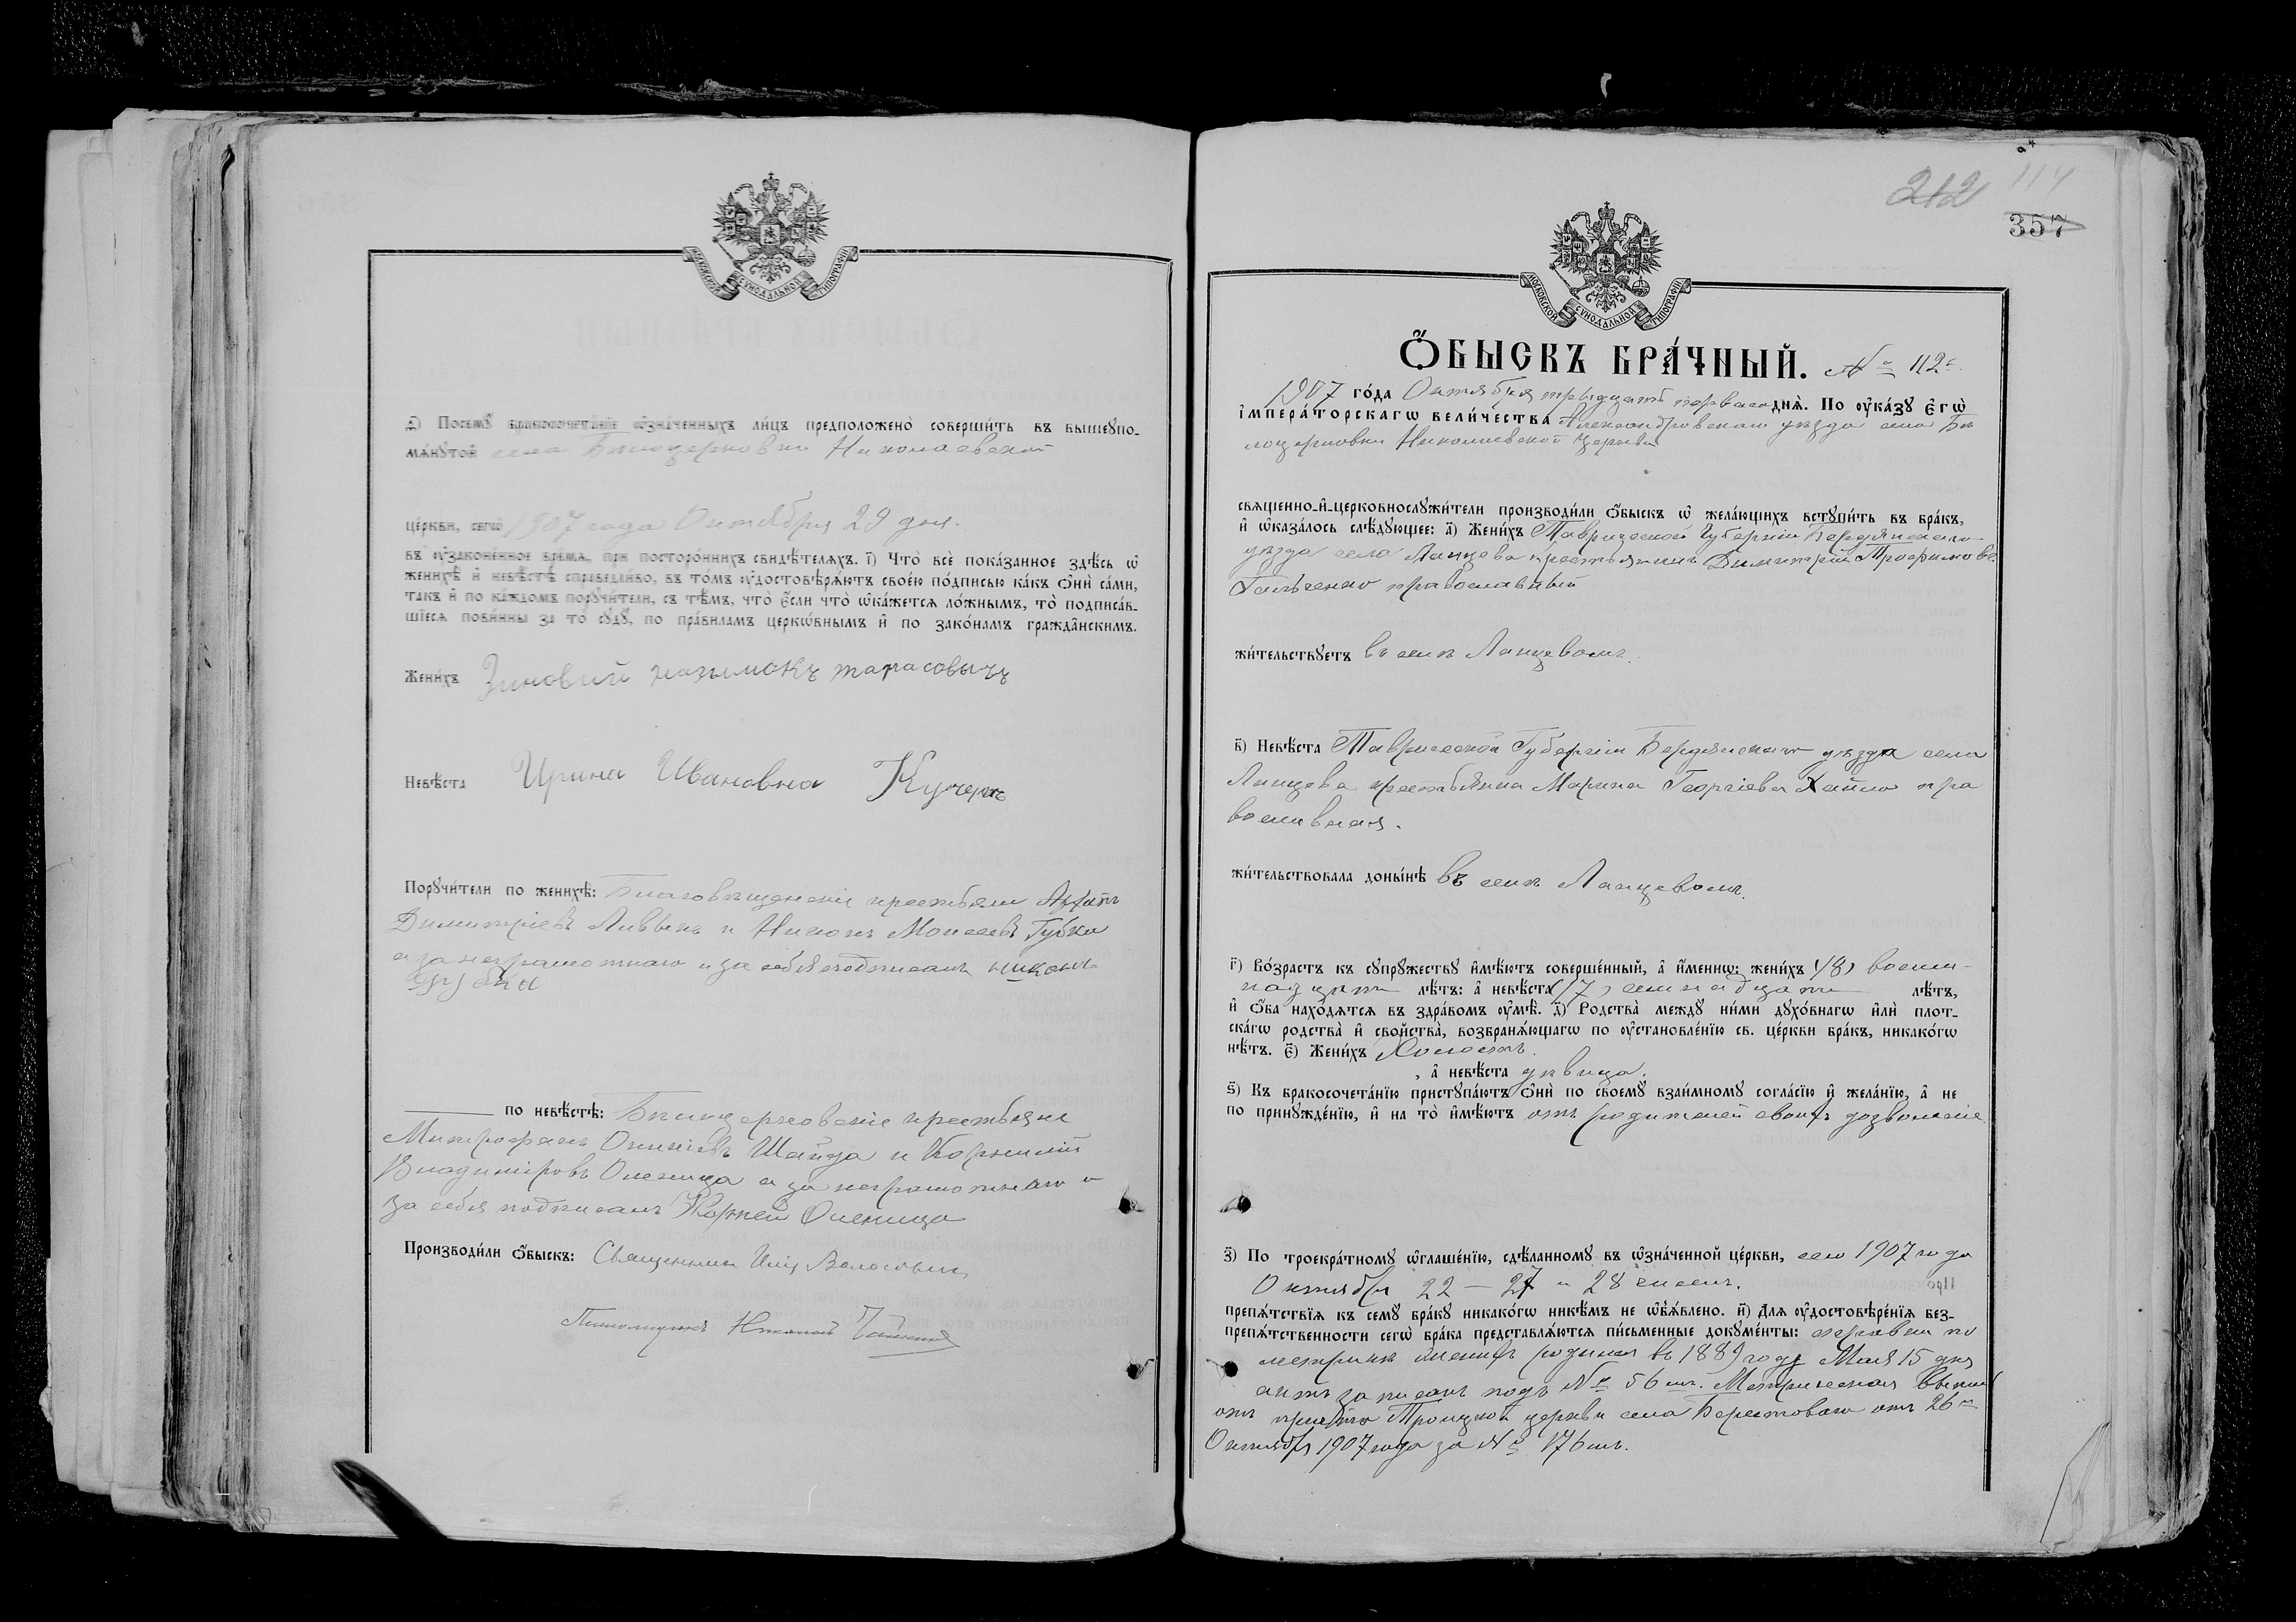 МОСКОВСКОЙ СѴНОДАЛЬНОЙ ТИПОГРАФІИ
ѳ҃) Посемꙋ̀ бракосочета́нїе ѡ҆зна́ченныхъ ли́цъ предположено̀ соверши́ть въ вышеꙋпо-
мѧ́нꙋтой села Бѣлоцерковки Николаевской
це́ркви, сегѡ̀ 1907 года Октября 29 дня.
въ ᲂу҆зако́ненное вре́мѧ, при посторо́ннихъ свидѣ́телѧхъ. і҃) Что̀ всѐ пока́занное здѣ́сь ѡ҆
женихѣ̀ и҆ невѣ́стѣ справедли́во, въ то́мъ ᲂу҆достовѣрѧ́ютъ свое́ю по́дписью ка́къ ѻ҆нѝ са́ми,
та́къ и҆ по ка́ждомъ порꙋчи́тели, съ тѣ́мъ, что̀ є҆́сли что̀ ѡ҆ка́жетсѧ ло́жнымъ, то̀ подписа́в-
шїесѧ пови́нны за то̀ сꙋдꙋ̀, по пра́виламъ церкѡ́внымъ и҆ по зако́намъ гражда̑нскимъ.
Жени́хъ Зиновий тарасовычъ
Невѣ́ста Ирина Ивановна Кучеръ
Порꙋчи́тели по женихѣ̀: Благовѣщенскіе крестьяне
Димитріевъ и Никонъ Моисеевъ Губка
а за неграмотнаго и за себя подписалъ никонъ
губка
по невѣ́стѣ: Бѣлоцерковскіе крестьяне
Митрофанъ Шайда и Корнилій
Владиміровъ Оленица а за неграмотнаго и
за себя подписалъ Корней Оленица
Производи́ли ѻ҆́быскъ: Священникъ
Псаломщикъ Николай
212 114
357
МОСКОВСКОЙ СѴНОДАЛЬНОЙ ТИПОГРАФІИ
Ѻ҆́БЫСКЪ БРА́ЧНЫЙ. № 112й
1907 го́да Октября тридцать перваго днѧ̀. По ᲂу҆ка́зꙋ Є҆гѡ̀
І҆мпера́торскагѡ вели́чества Александровскаго уѣзда села Бѣ
лоцерковки Николаевской церкви
свѧще́нно-и҆-церковнослꙋжи́тели производи́ли ѻ҆́быскъ ѡ҆ жела́ющихъ встꙋпи́ть въ бра́къ,
и҆ ѡ҆каза́лось слѣ́дꙋющее: а҃) Жени́хъ Таврической Губерніи Бердянскаго
уѣзда села Ланцева крестьянинъ Димитрій Трофимовъ
Гальченко православный
жи́тельствꙋетъ въ селѣ Ланцевомъ.
в҃) Невѣ́ста Таврической Губерніи Бердянскаго уѣзда села
Ланцева крестьянка Марина Георгіева Хайло пра
вославная.
жи́тельствовала доны́нѣ въ селѣ Ланцевомъ.
г҃) Во́зрастъ къ сꙋпрꙋ́жествꙋ и҆мѣ́ютъ соверше́нный, а҆ и҆́меннѡ: жени́хъ (18) восем-
надцати лѣ́тъ: а҆ невѣ́ста (17) семнадцати лѣ́тъ,
и҆ ѻ҆́ба нахо́дѧтсѧ въ здра́вомъ ᲂу҆мѣ̀. д҃) Родства̀ междꙋ̀ ни́ми дꙋхо́внагѡ и҆лѝ пло́т-
ска́гѡ родства̀ и҆ сво́йства̀, возбранѧ́ющагѡ по ᲂу҆становле́нїю св. це́ркви бра́къ, никако́гѡ
нѣ́тъ. є҃) Жени́хъ Холостъ.
, а҆ невѣ́ста дѣвица.
ѕ҃) Къ бракосочета́нїю пристꙋпа́ютъ ѻ҆нѝ по своемꙋ̀ взаи́мномꙋ согла́сїю и҆ жела́нїю, а҆ не
по принꙋжде́нїю, и҆ на то̀ и҆мѣ́ютъ отъ родителей своихъ дозволеніе
з҃) По троекра́тномꙋ ѡ҆глаше́нїю, сдѣ́ланномꙋ въ ѡ҆зна́ченной це́ркви, сего 1907 года
Октября 22 — 27 и 28 чиселъ.
препѧ́тствїѧ къ семꙋ̀ бра́кꙋ никако́гѡ никѣ́мъ не ѡ҆б̾ѧ́влено. и҃) Длѧ ᲂу҆достовѣре́нїѧ без-
препѧ́тственности сегѡ̀ бра́ка представлѧ́ютсѧ пи́сьменные докꙋме́нты: первый по
метрикѣ женихъ родился въ 1889 году Мая 15 дня
актъ записанъ подъ № 56мъ. Метрическая
отъ Троицкой церкви села Берестоваго отъ 26го
Октября 1907 года за № 176мъ.